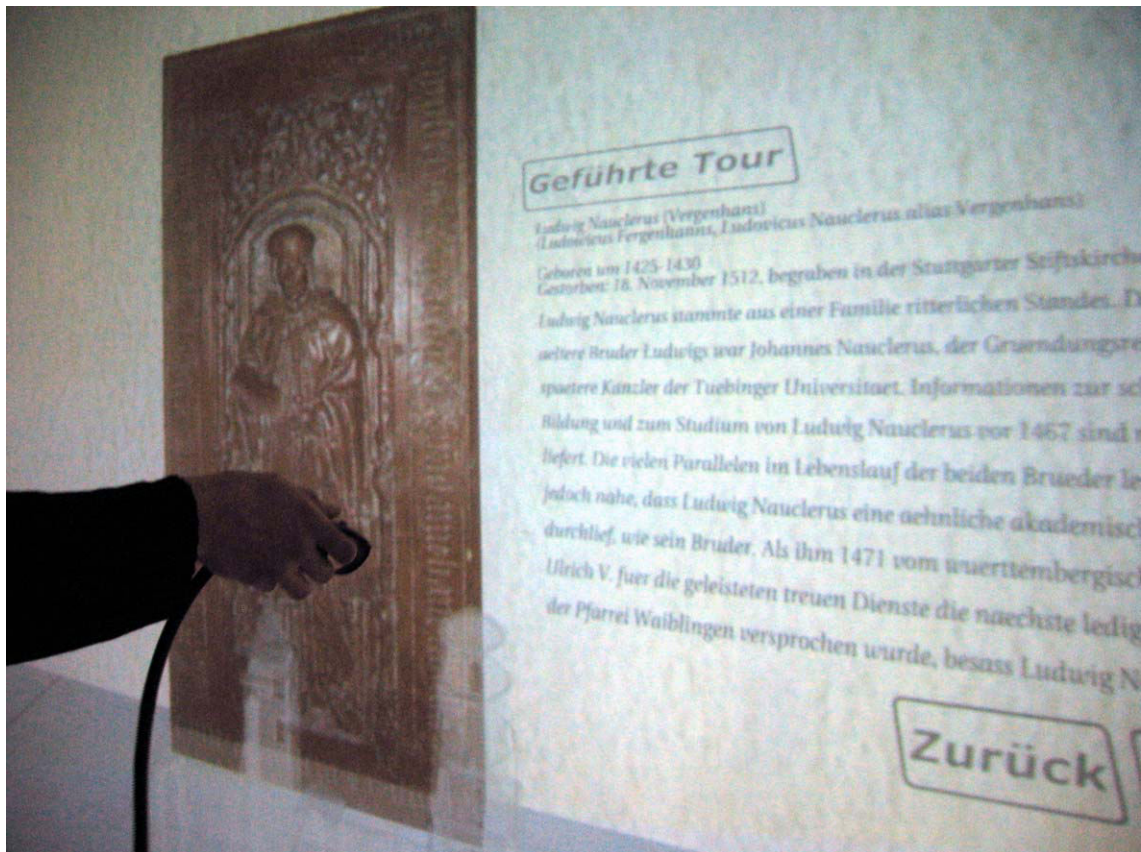 Geführte Tour
Ludwig Nauclerus (Vergenhans)
(Ludovicus Fergenhanns, Ludovicus Nauclerus alias Vergenhans)
Geboren um 1425-1430
Gestorben: 18. November 1512, begraben in der Stuttgarter Stiftskirche
Ludwig Nauclerus stammte aus einer Familie ritterlichen Standes. D
aeltere Bruder Ludwigs war Johannes Nauclerus, der Gruendungsre
spaetere Kanzler der Tuebinger Universitaet. Informationen zur sc
Bildung und zum Studium von Ludwig Nauclerus vor 1467 sind
liefert. Die vielen Parallelen im Lebenslauf der beiden Brueder le
jedoch nahe, dass Ludwig Nauclerus eine aehnliche akademisc
durchlief, wie sein Bruder. Als ihm 1471 vom wuerttembergisc
Ulrich V. fuer die geleisteten treuen Dienste die naechste ledig
der Pfarrei Waiblingen versprochen wurde, besass Ludwig N
Zurück